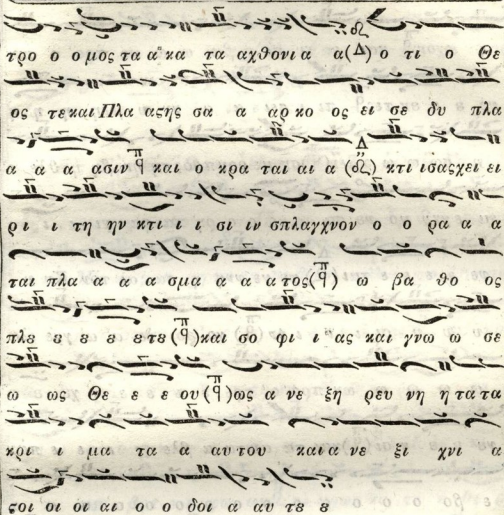 τρο ο ο μος τα α κα τα αχθονι α α (Δ) ο τι ο Θε
ος τε και Πλα ϛης σα α αρ κο ος ει σε δυ πλα
α α α ασιν και ο κρα ται αι α κτι ισας χει ει
ρι ι τη ην κτι ι ι σι ιν σπλαγχνον ο ο ρα α α
ται πλα α α α σμα α α α τος ω βα θο ος
πλȣ ȣ ȣ ȣ ȣ ȣ τȣ και σο φι ι ας και γνω ω σε
ω ως Θε ε ε ου ως α νε ξη ρευ νη η τα τα
κρι ι μα τα α αυ του και α νε ξι χνι α
ϛοι οι οι αι ο ο δοι α αυ τȣ ȣ